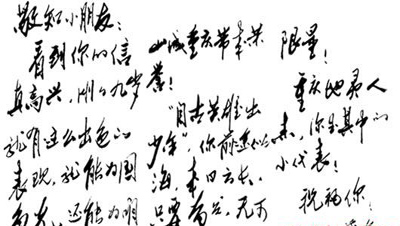 小朋友:
看到你的信
真高兴,刚刚九岁
就有这么出色的
表现,就能为国
争光,还能为
山城重庆带来荣
誉!
"自古英雄出
少年",你前途似
海,来日方长,
只要奋发,无可
限量!
重庆地灵人
杰,你是其中的
小代表!
祝福你!